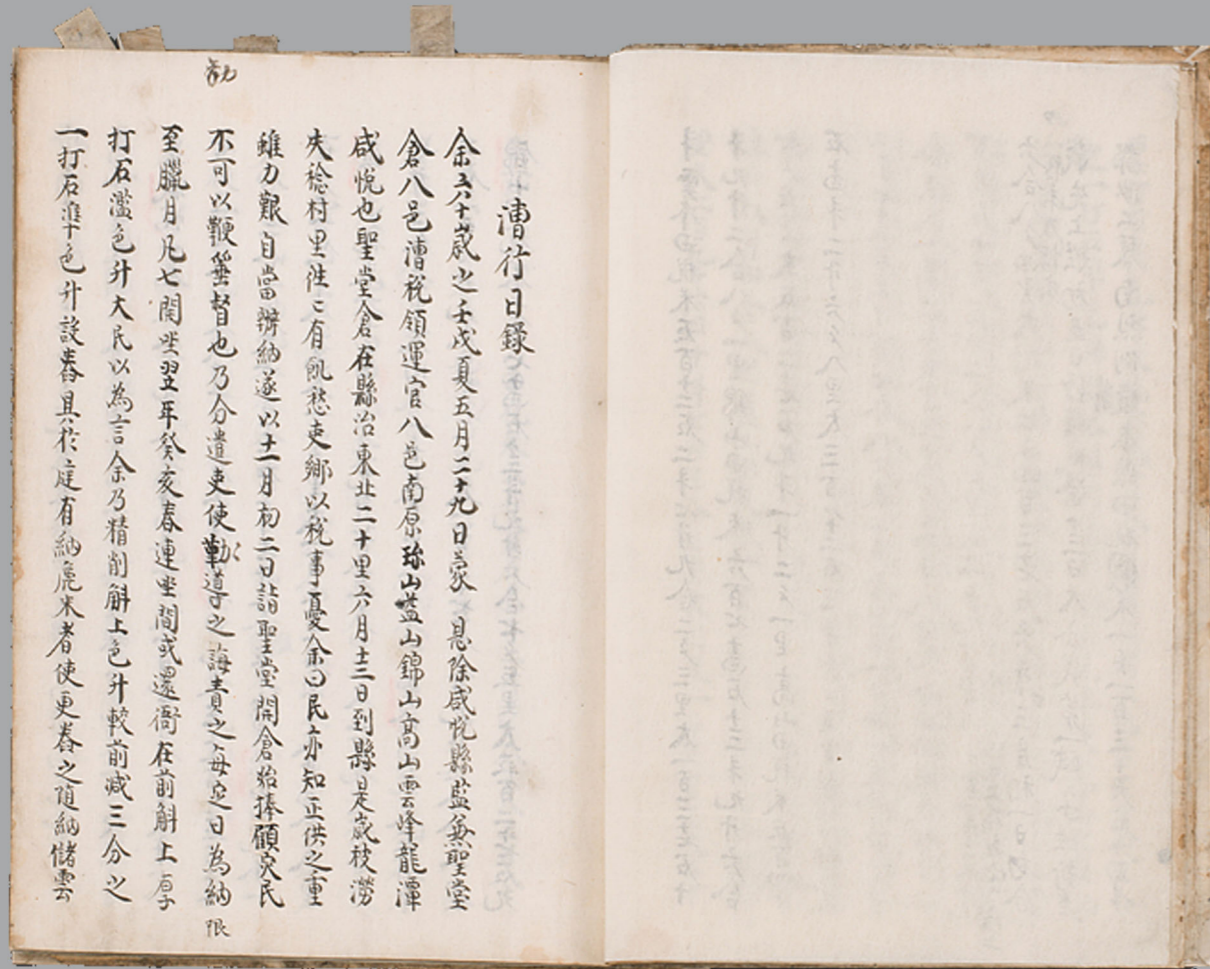 漕行日錄
余六十歲之壬戌夏五月二十九日蒙 恩除咸悅縣監兼聖堂
倉八邑漕稅領運官八邑南原珍山益山錦山高山雲峰龍潭
咸悅也聖堂倉在縣治東北二十里六月十三日到縣是歲被澇
失稔村里往〻有飢愁吏鄉以稅事憂余曰民亦知正供之重
雖力艱自當辦納遂以十一月初二日詣聖堂開倉始捧顧灾民
不可以鞭箠督也乃分遣吏使勸導之誨責之每定日為納限
至臘月凡七開坐翌年癸亥春連坐間或還衙在前斛上厚
打石濫色升大民以為言余乃精削斛上色升較前减三分之
一打石準色升設舂具於庭有納麁米者使更舂之隨納儲雲
勸